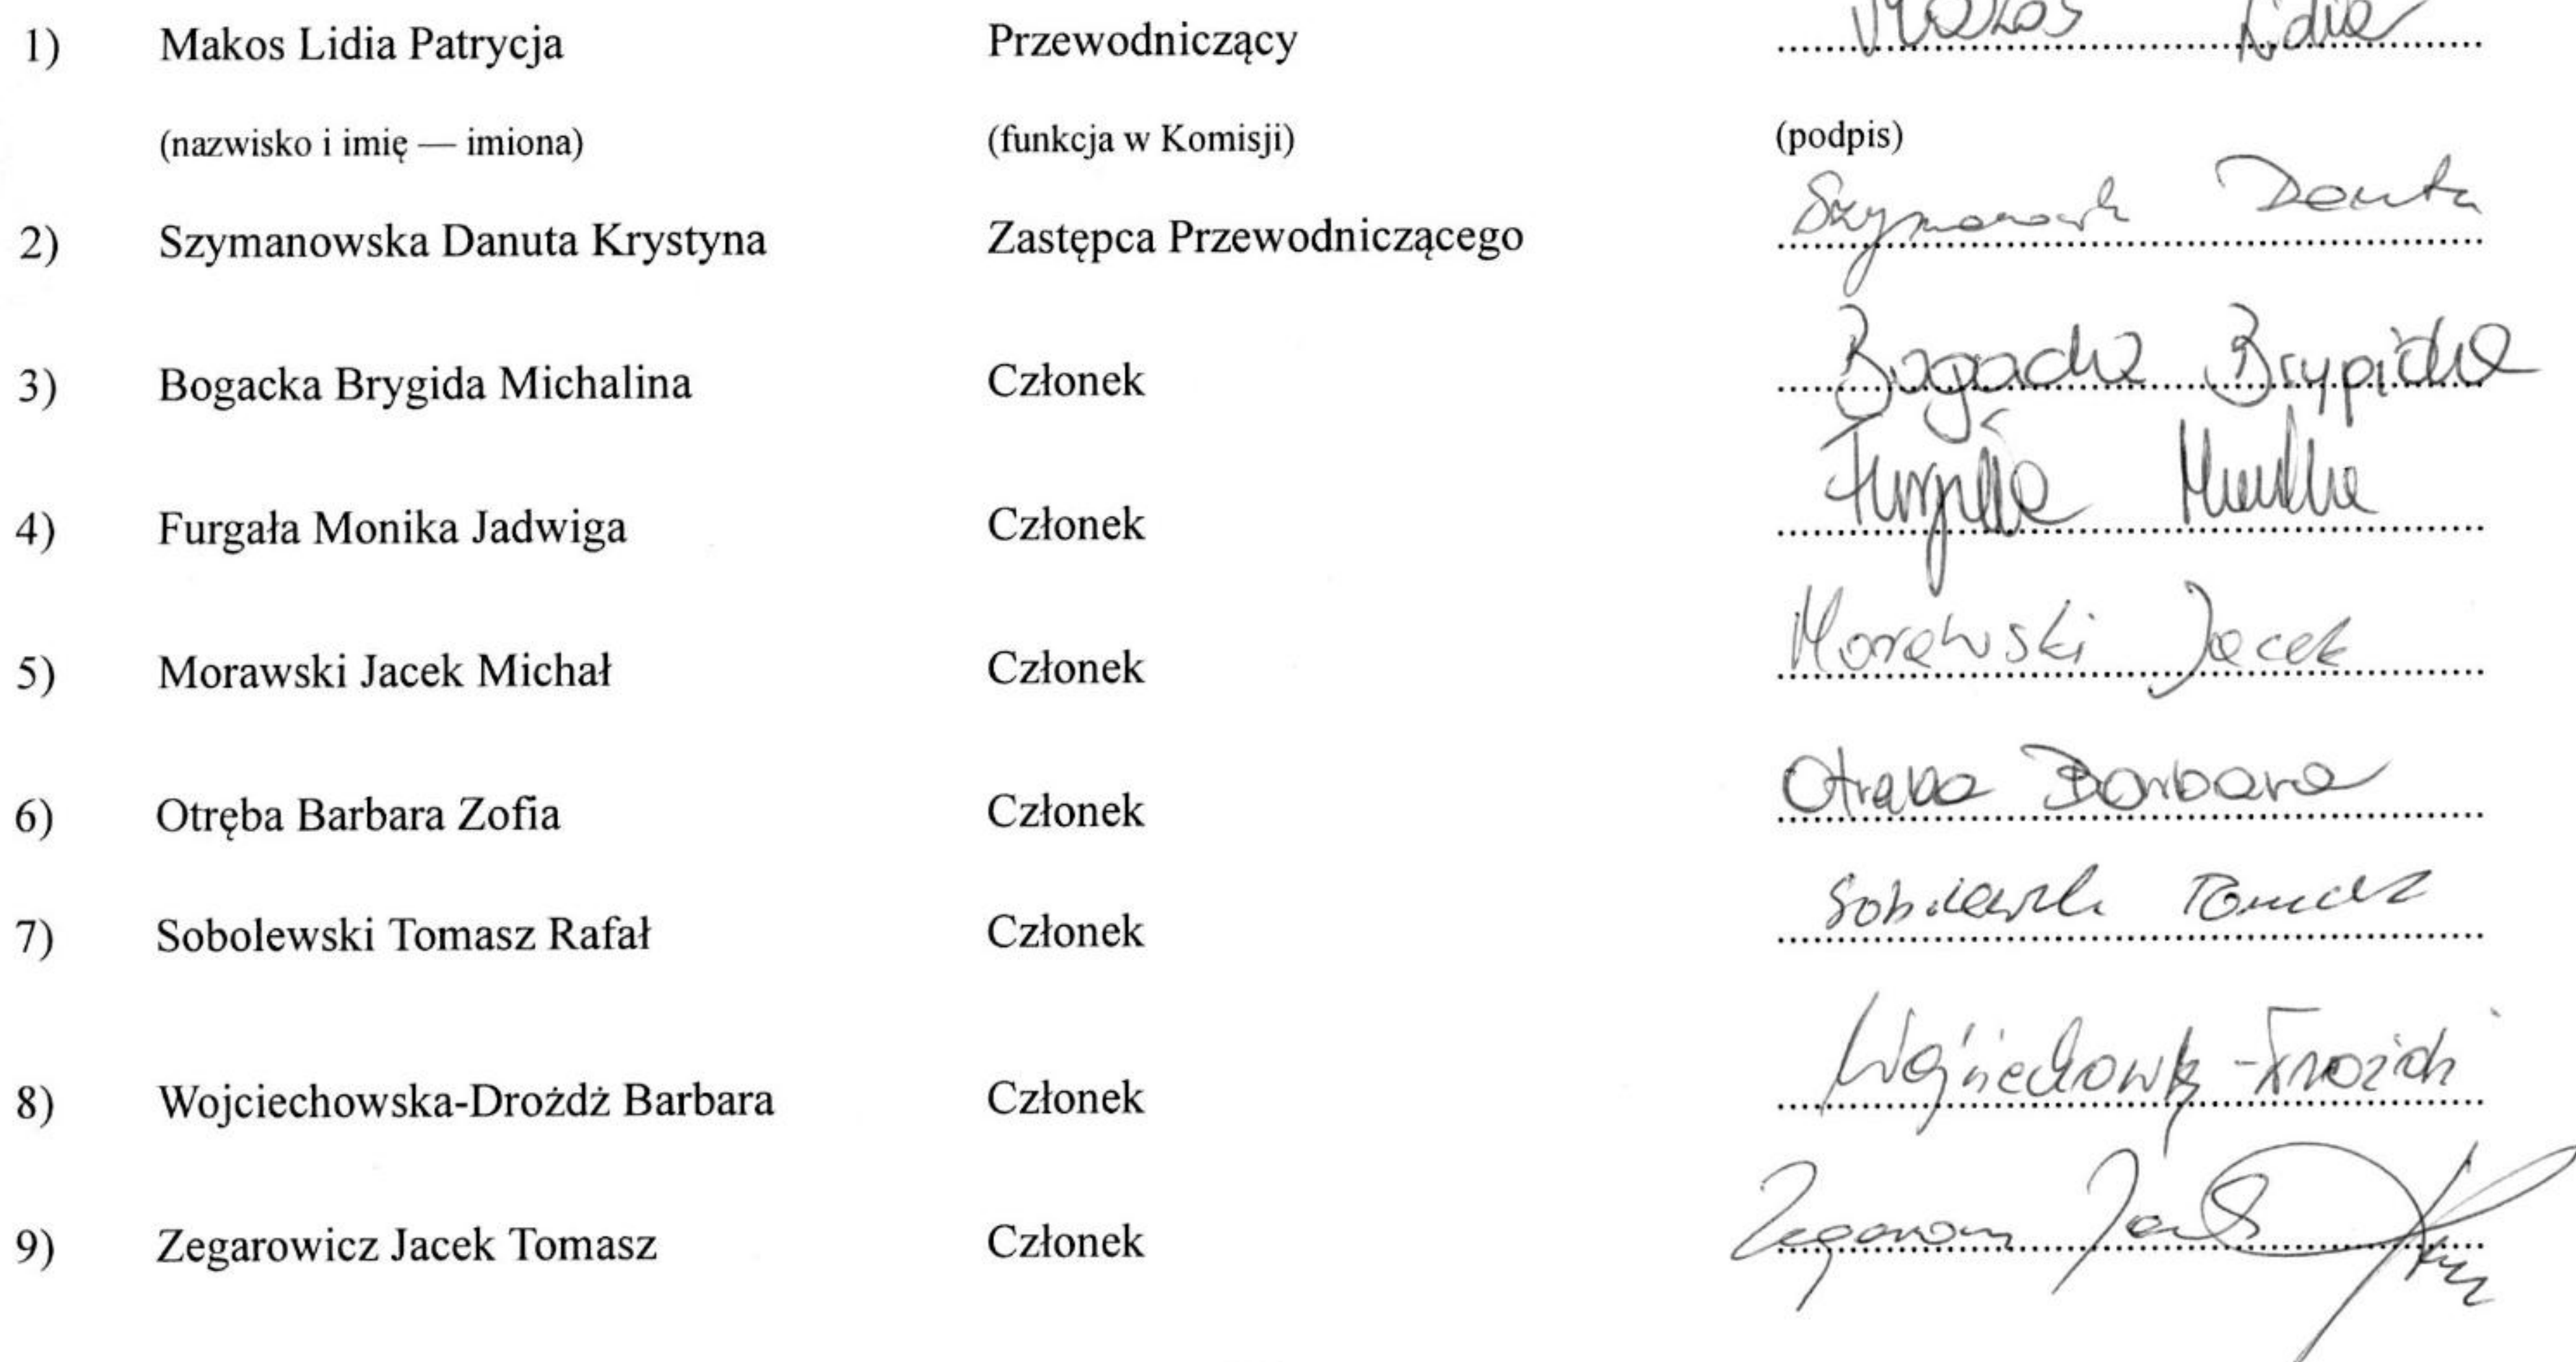 1) Makos Lidia Patrycja Przewodniczący Makos Lidia
(nazwisko i imię — imiona) (funkcja w Komisji) (podpis)
2) Szymanowska Danuta Krystyna Zastępca Przewodniczącego Danuta
3) Bogacka Brygida Michalina Członek Bogacka Brygida
4) Furgała Monika Jadwiga Członek Furgała Monika
5) Morawski Jacek Michał Członek Morawski Jacek
6) Otręba Barbara Zofia Członek Otręba Barbara
7) Sobolewski Tomasz Rafał Członek Tomasz
8) Wojciechowska-Drożdż Barbara Członek
9) Zegarowicz Jacek Tomasz Członek